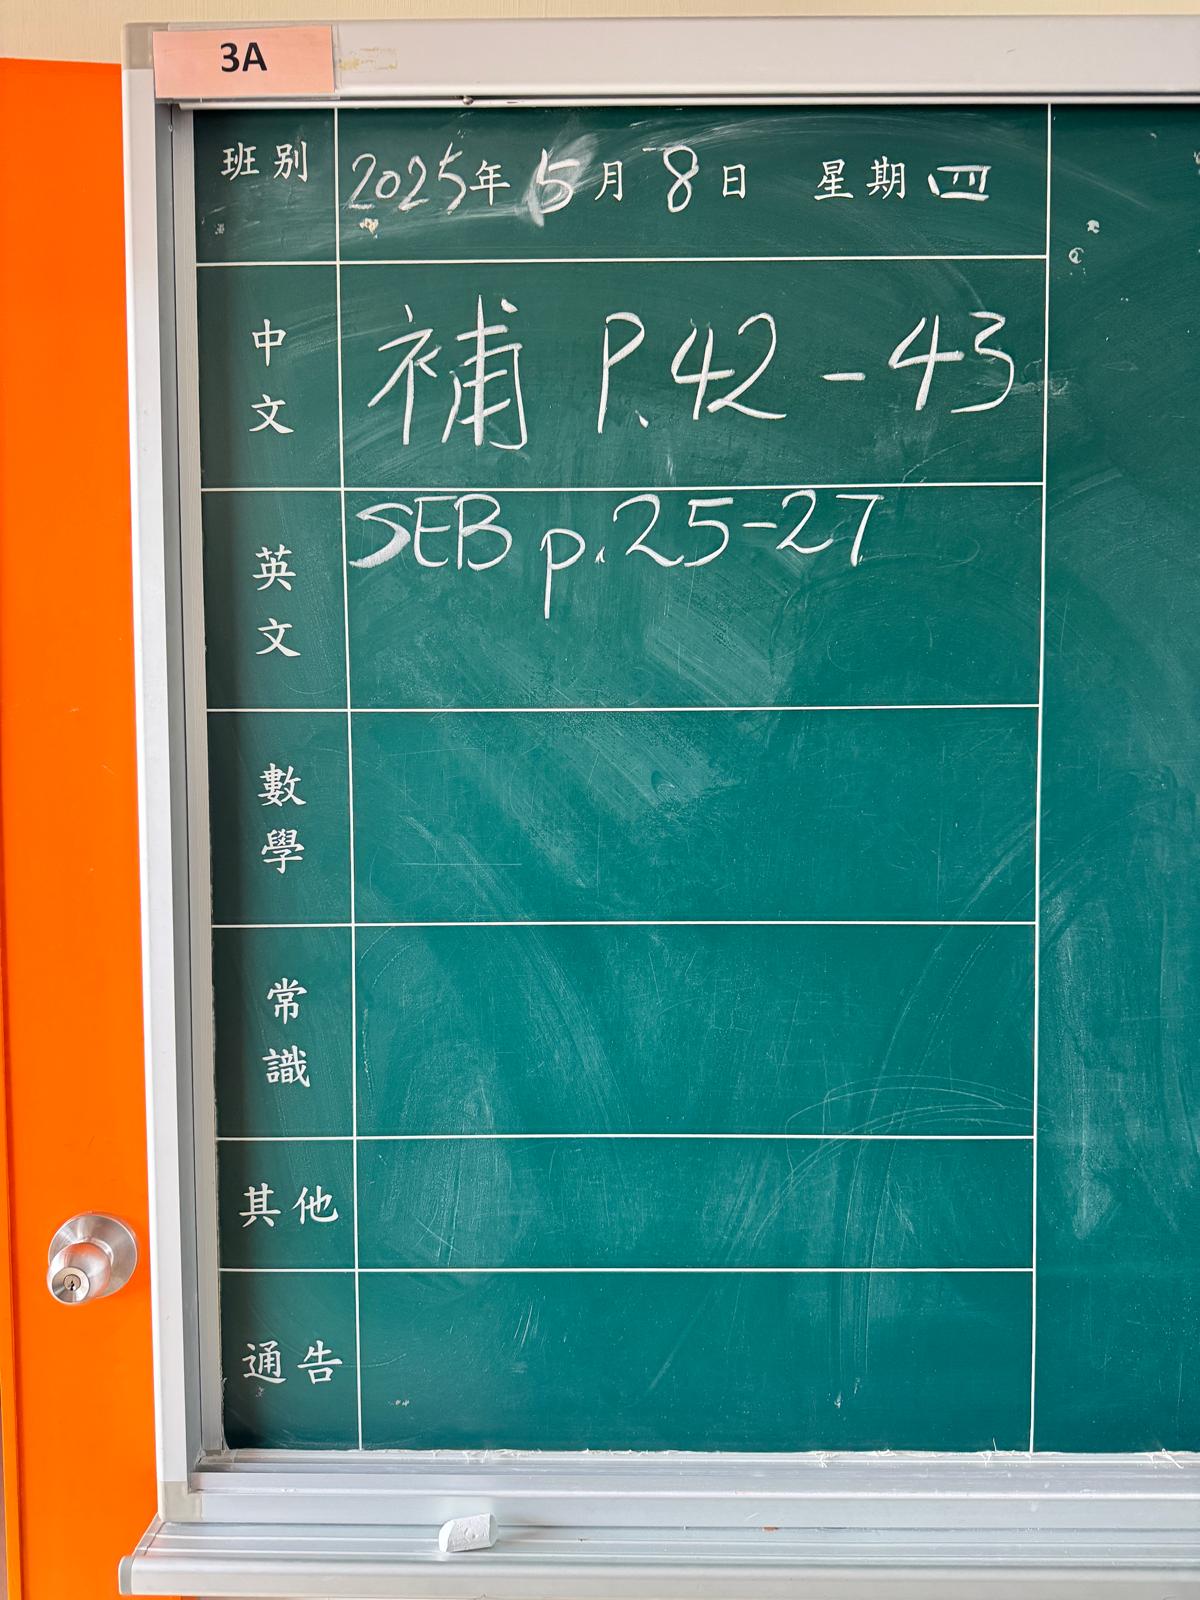 3A
班別 2025年5月8日 星期四
中文 補 P.42-43
英文 SEB p.25-27
數學
常識
其他
通告